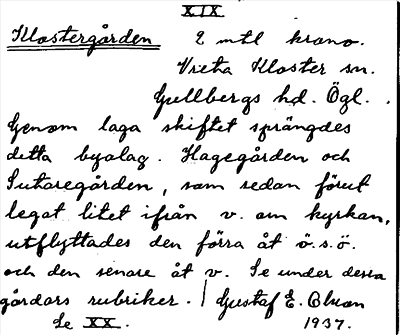 XIX
Klostergården 2 mtl krono.
Vreta Kloster sn.
Gullbergs hd. Ögl.
Genom laga skiftet sprängdes
detta byalag. Hagegården och
Sutaregården, som sedan förut
legat litet ifrån v. om kyrkan,
utflyttades den förra åt ö.s.ö.
och den senare åt v. Se under dessa
gårdars rubriker. / Gustaf E. Olson
Se XX. 1937.